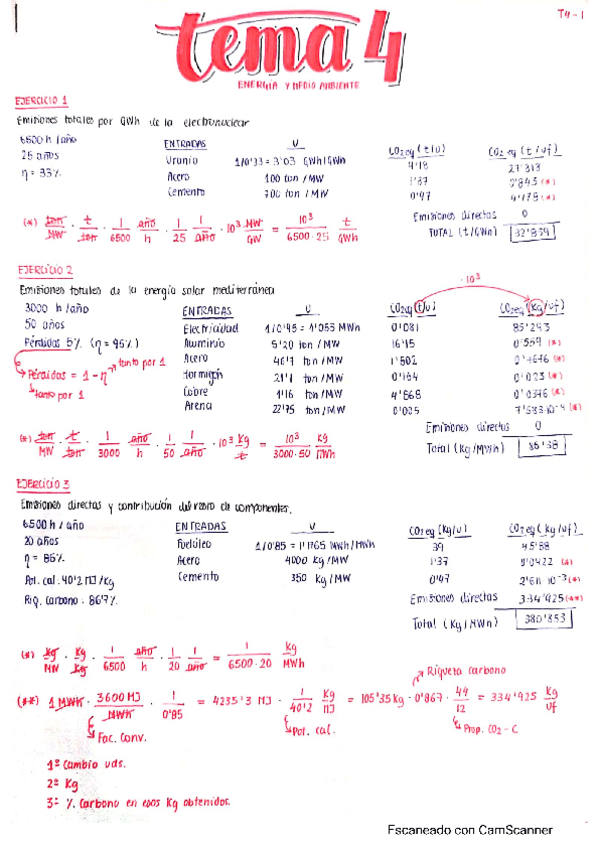 T4-1
tema 4
ENERGÍA Y MEDIO AMBIENTE
EJERCICIO 1
Emisiones totales por GWh de la electronuclear
6500 h/año
25 años
η = 33%
ENTRADAS U CO2eq (t/u) CO2eq (t/uf)
Uranio 1/0'33 = 3'03 GWh/GWh 4'18
Acero 100 ton/MW 1'37 0'843 (*)
Cemento 700 ton/MW 0'97 4'178 (*)
Emisiones directas 0
TOTAL (t/GWh)
(*) ton/MW · t/ton · 1/6500 año/h · 1/25 1/año · 10³ MW/GW = 10³/6500·25 t/GWh
EJERCICIO 2
Emisiones totales de la energía solar mediterránea
3000 h/año
50 años
Pérdidas 5% (η = 95%)
Pérdidas = 1 - η → tanto por 1
tanto por 1
· 10³
ENTRADAS U CO2eq (t/u) CO2eq (kg/uf)
Electricidad 1/0'95 = 1'053 MWh 0'081 85'293
Aluminio 5'20 ton/MW 16'15 0'559 (*)
Acero 46'7 ton/MW 1'502 0'4676 (*)
Hormigón 21'1 ton/MW 0'164 0'023 (*)
Cobre 1'16 ton/MW 4'868 0'0376 (*)
Arena 22'75 ton/MW 0'005 7'583·10⁻⁴ (*)
Emisiones directas 0
Total (kg/MWh) 86'38
(*) ton/MW · t/ton · 1/3000 año/h · 1/50 1/año · 10³ kg/t = 10³/3000·50 kg/MWh
EJERCICIO 3
Emisiones directas y contribución del resto de componentes.
6500 h/año
20 años
η = 85%
Pol. cal. 40'2 MJ/kg
Riq. carbono. 86'7%
ENTRADAS U CO2eq (kg/u) CO2eq (kg/uf)
Fuelóleo 1/0'85 = 1'1765 MWh/MWh 39 45'88
Acero 4000 kg/MW 1'37 0'0422 (*)
Cemento 350 kg/MW 0'97 2'611·10⁻³ (*)
Emisiones directas 334'925 (**)
Total (kg/MWh) 380'853
(*) kg/MW · kg/kg · 1/6500 año/h · 1/20 1/año = 1/6500·20 kg/MWh
(**) 1 MWh · 3600 MJ/MWh · 1/0'85 = 4235'3 MJ · 1/40'2 kg/MJ = 105'35 kg · 0'867 · 44/12 = 334'925 kg/uf
Riqueza carbono
Fac. conv.
Pot. cal.
Prop. CO2 - C
1º Cambio uds.
2º Kg
3º % Carbono en esos kg obtenidos.
Escaneado con CamScanner